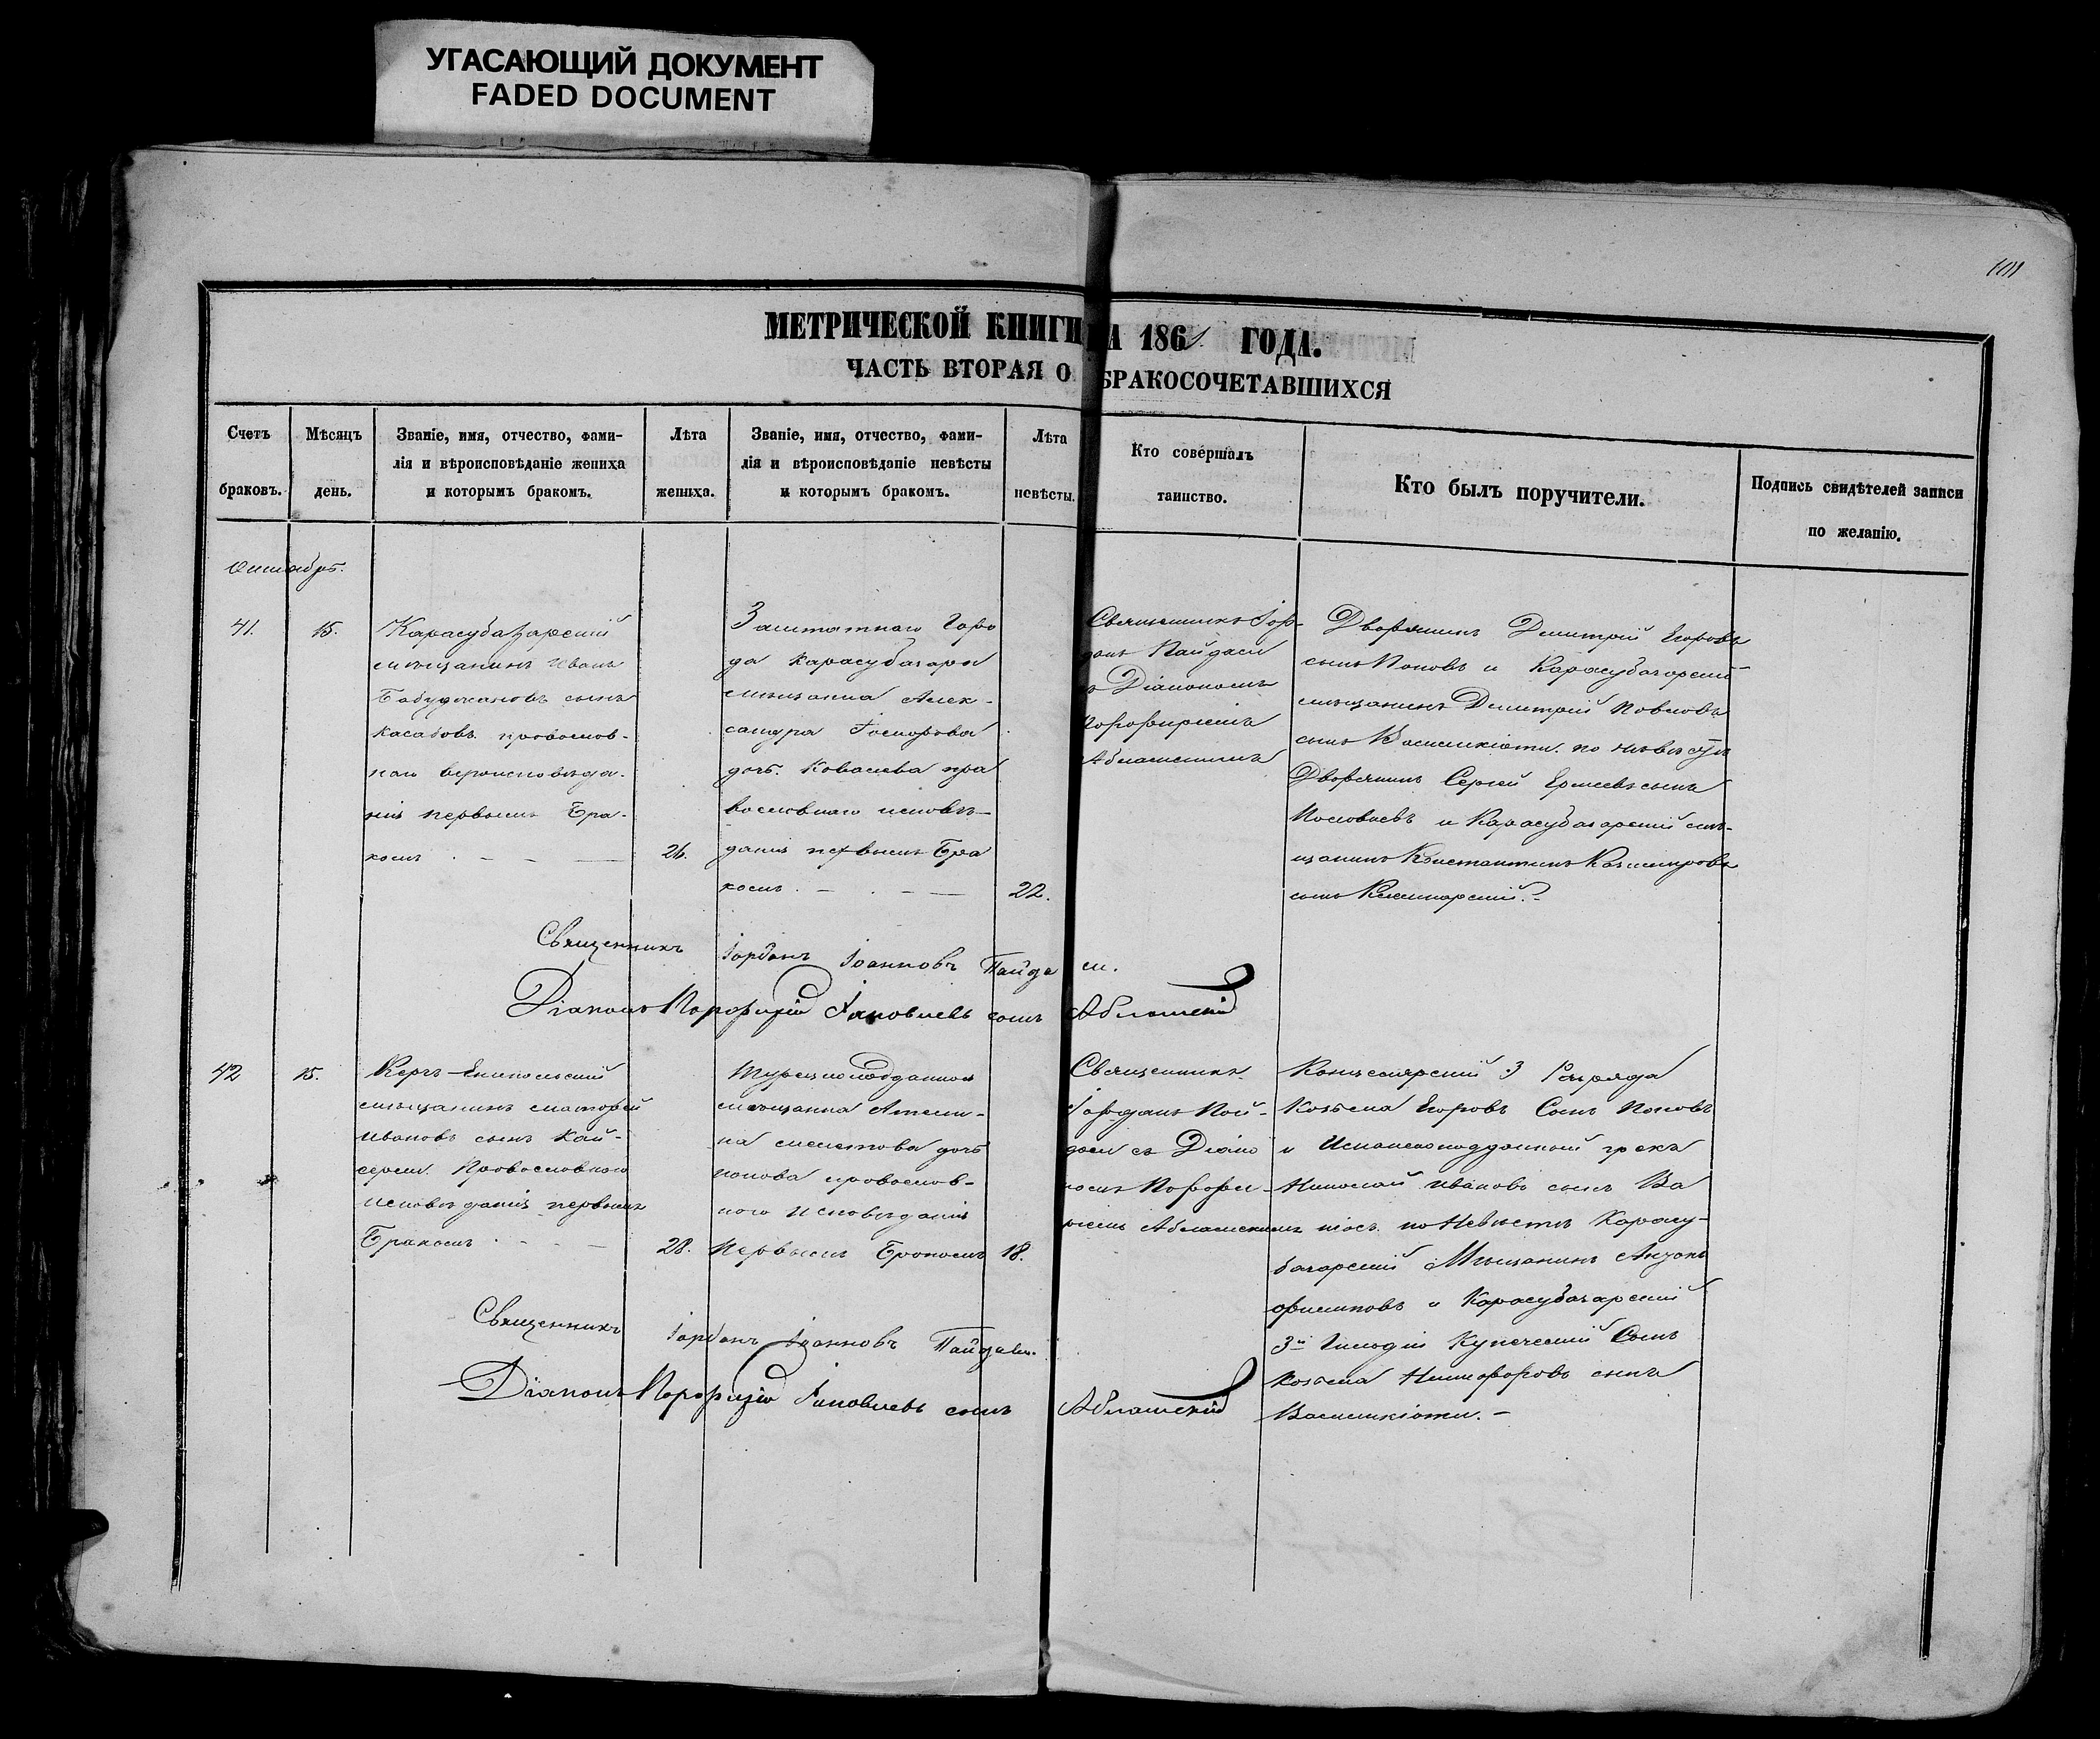 УГАСАЮЩИЙ ДОКУМЕНТ
FADED DOCUMENT
101
МЕТРИЧЕСКОЙ КНИГИ НА 1861 ГОДА.
ЧАСТЬ ВТОРАЯ О БРАКОСОЧЕТАВШИХСЯ
Счетъ
браковъ.
Мѣсяцъ
день.
Званіе, имя, отчество, фами-
лія и вѣроисповѣданіе жениха
и которымъ бракомъ.
Лѣта
жениха.
Званіе, имя, отчество, фами-
лія и вѣроисповѣданіе невѣсты
и которымъ бракомъ.
Лѣта
невѣсты.
Кто совершалъ
таинство.
Кто былъ поручители.
Подпись свидѣтелей записи
по желанію.
Октябрь.
41.
15.
Карасубазарскій
мѣщанинъ Иванъ
сынъ
Касабовъ православ-
наго вероисповѣда-
нія первымъ бра-
комъ
26.
Заштатнаго Горо
да Карасубазара
мѣщанка Алек-
сандра
дочь. Ковалева пра
вославнаго исповѣ-
данія первымъ бра
комъ.
22.
Священникъ Іор-
данъ Пайдаси
съ Діакономъ
Порфиріемъ
Аблашскимъ
Дворянинъ Димитрій Егоровъ
сынъ Поповъ и Карасубазарскій
мѣщанинъ Димитрій Павловъ
сынъ Василикіоти. по невѣстѣ
Дворянинъ Сергей сынъ
и Карасубазарскій мѣ-
щанинъ Константинъ Казимировъ
сынъ
Священникъ Іорданъ Іоанновъ Пайдаси.
Діаконъ Порфирій Іаковлевъ сынъ Аблашскій
42
15.
Керчь-Еникольскій
мѣщанинъ
Ивановъ сынъ Кай-
сери. Православнаго
исповѣданія первымъ
бракомъ
28.
Турецкоподданная
мѣщанка
дочь
Попова православ-
наго исповѣданія
первымъ бракомъ
18.
Священникъ
Іорданъ Пай-
даси съ Діако
номъ Порфи-
ріемъ Аблашскимъ
Канцелярскій 3 Разряда
Козьма Егоровъ Сынъ Поповъ
и Испанскоподданный грекъ
Николай Ивановъ сынъ
по Невѣстѣ Карасу-
базарскій Мѣщанинъ
и Карасубазарскій
3й Гильдіи Купеческій Сынъ
Козьма Никифоровъ сынъ
Василикіоти.
Священникъ Іорданъ Іоанновъ Пайдаси.
Діаконъ Порфирій Іаковлевъ сынъ Аблашскій